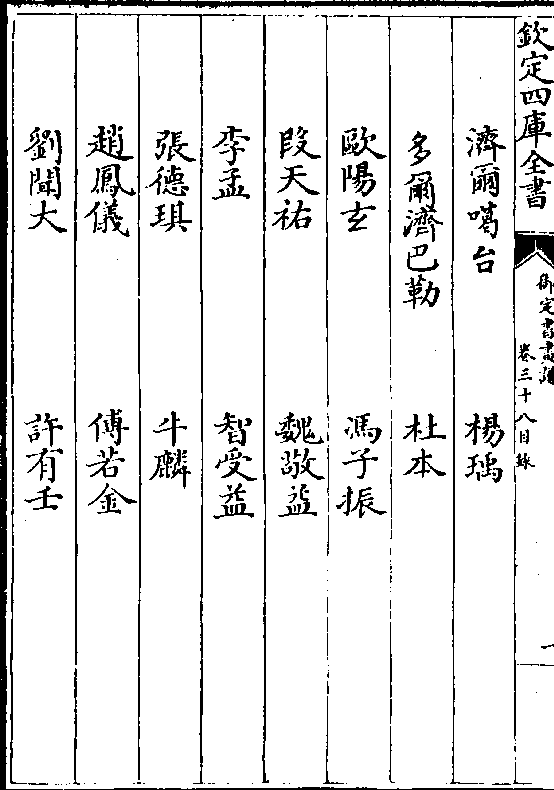 欽定四庫全書
御定書畫譜
卷三十八目録
濟爾噶台 楊瑀
多爾濟巴勒 杜本
歐陽玄 馮子振
段天祐 魏敬益
李孟 智受益
張德琪 牛麟
趙鳳儀 傅若金
劉聞大 許有壬